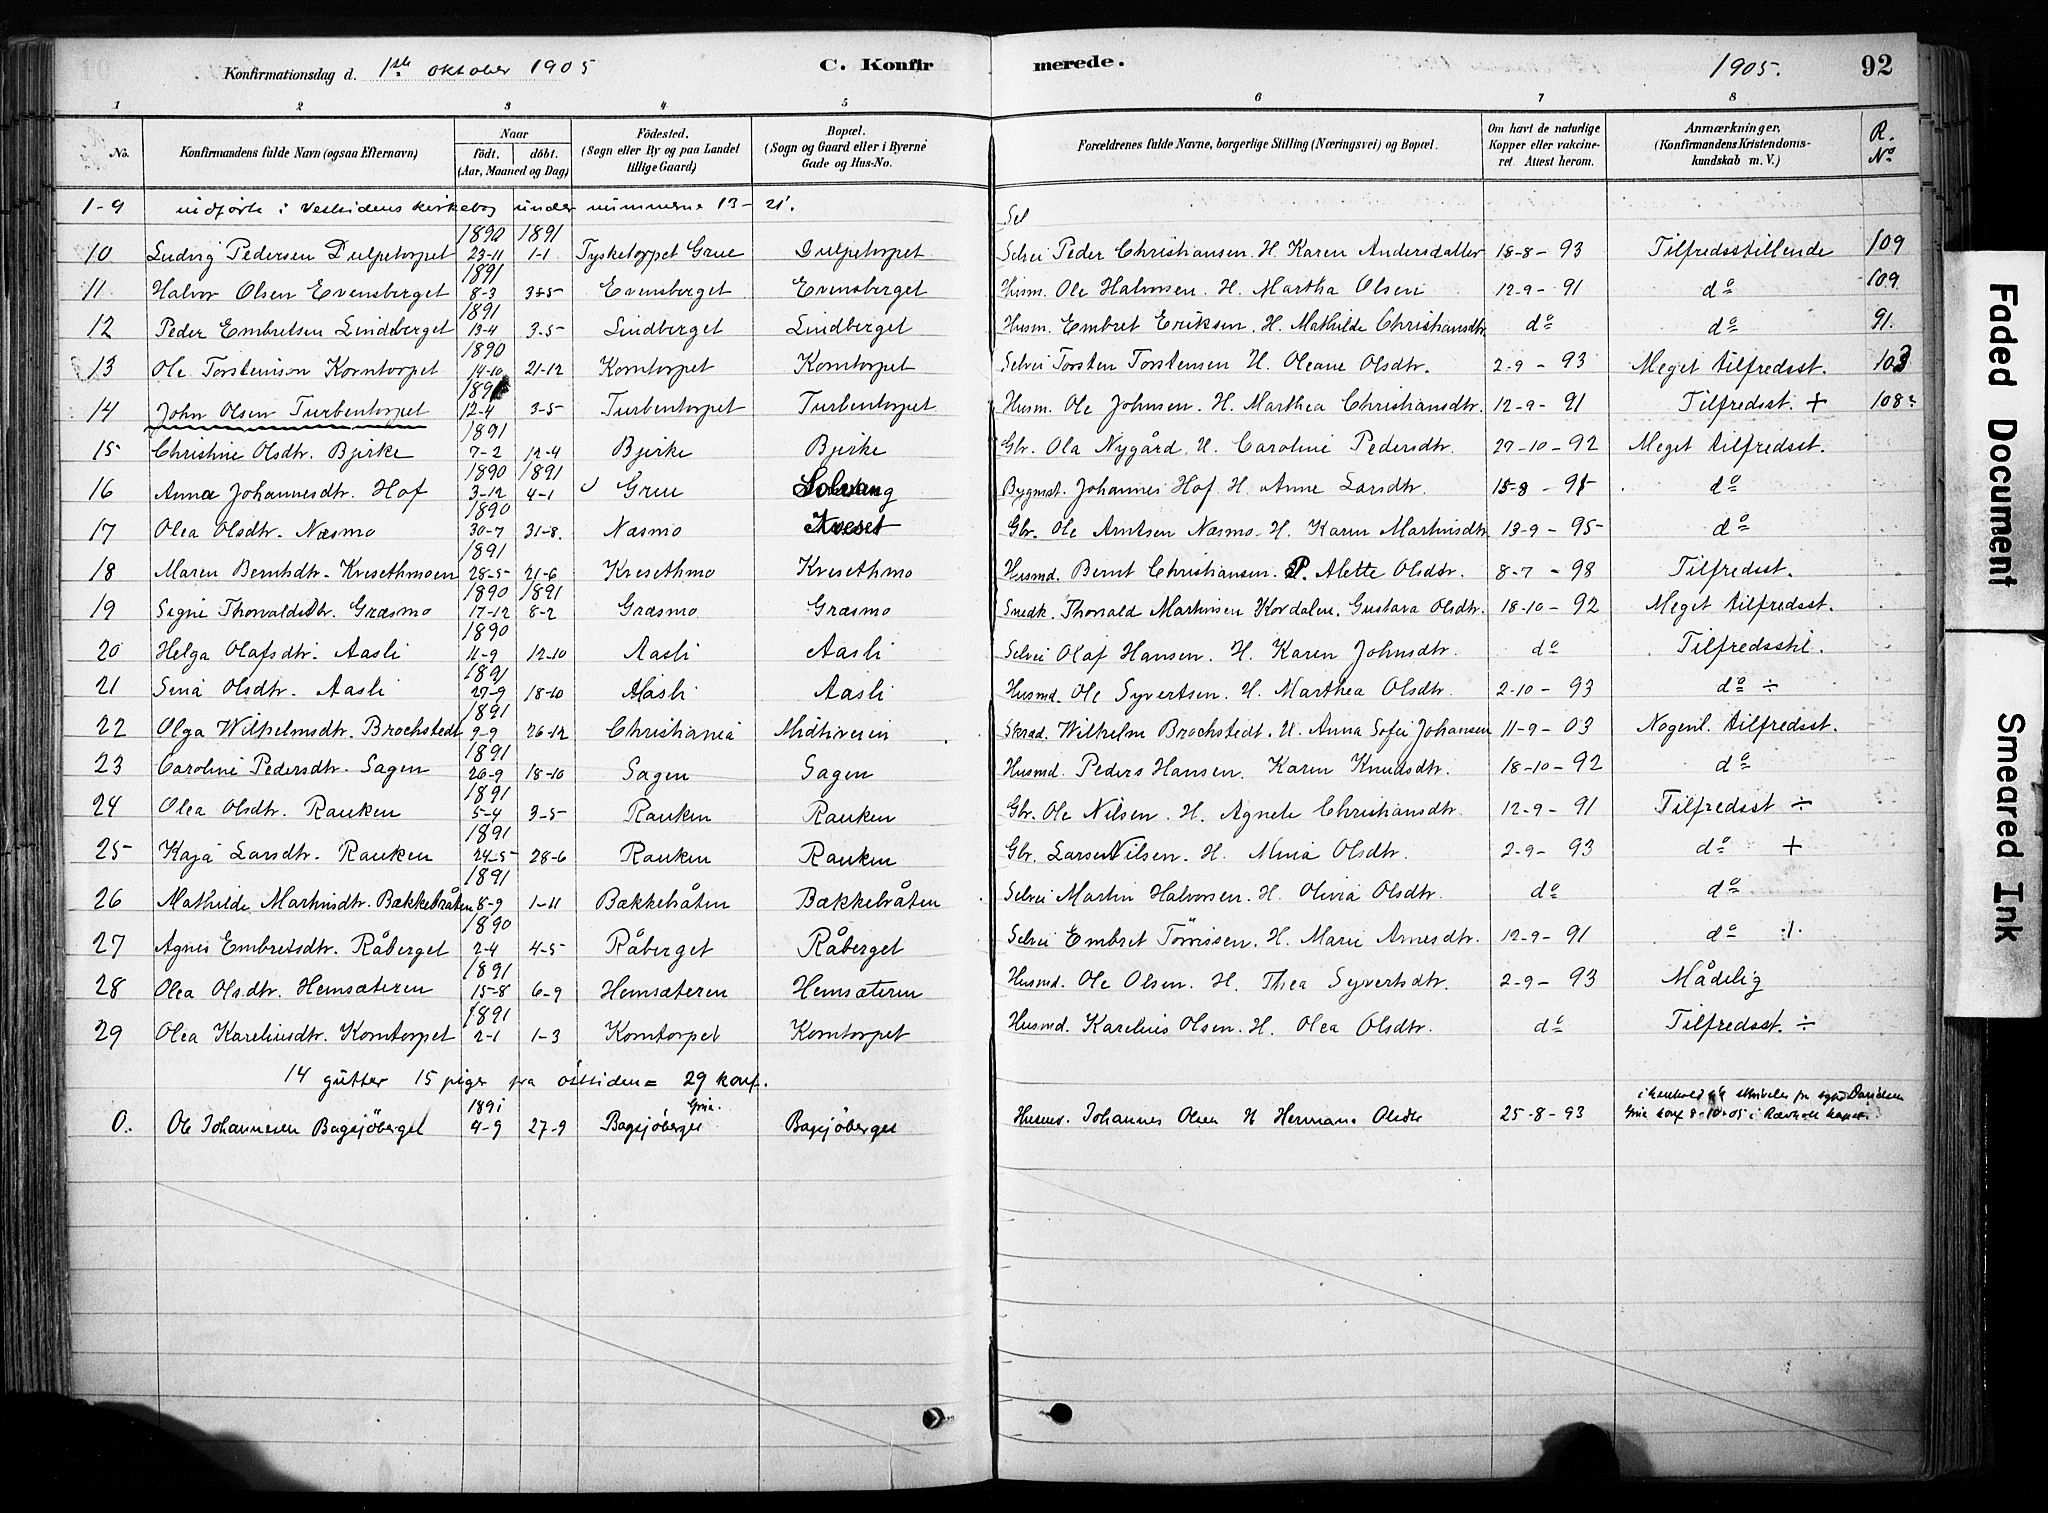 Konfirmationsdag d. 1ste oktober 1905 C. Konfirmerede. 1905. 92
1 2 3 4 5 6 7 8
No. Konfirmandens fulde Navn (ogsaa Efternavn) Naar født. døbt. (Aar, Maaned og Dag) Fødested. (Sogn eller By og paa Landet tillige Gaard) Bopæl. (Sogn og Gaard eller i Byerne Gade og Hus-No. Forældrenes fulde Navne, borgerlige Stilling (Næringsvei) og Bopæl. Om havt de naturlige Kopper eller vakcineret. Attest herom. Anmærkninger. (Konfirmandens Kristendomskundskab m. V.) R. No
1-9 indførte i Vestsidens kirkebog under nummerne 13-21.
10 Ludvig Pedersen Dulpetorpet 1890 23-11 1891 1-1 Tysketorpet Grue Dulpetorpet Selvei Peder Christiansen. H. Karen Andersdatter 18-8-93 Tilfredsstillende 109
11 Halvor Olsen Evensberget 1891 8-3 3-5 Evensberget Evensberget Husm. Ole Halvorsen. H. Martha Olsen 12-9-91 do 109
12 Peder Embretsen Lindberget 1891 13-4 3-5 Lindberget Lindberget Husm. Embret Eriksen. H. Mathilde Christiansdtr do do 91.
13 Ole Torstensen Korntorpet 1890 14-10 21-12 Korntorpet Korntorpet Selvei Torsten Torstensen H. Oleane Olsdtr. 2-9-93 Meget tilfredsst. 103
14 John Olsen Turbentorpet 1891 12-4 3-5 Turbentorpet Turbentorpet Husm. Ole Johnsen. H. Marthea Christiansdtr. 12-9-91 Tilfredsst. + 108
15 Christine Olsdtr. Bjerke 1891 7-2 12-4 Bjerke Bjerke Gbr. Ola Nygård. H. Caroline Pedersdtr. 27-10-92 Meget tilfredsst.
16 Anna Johannesdtr. Hof 1890 3-12 1891 4-1 Grue Solvang Bygmst. Johannes Hof. H. Anne Larsdtr. 15-8-95 do
17 Olea Olsdtr. Næsmo 1890 30-7 31-8. Næsmo Kveset Gbr. Ole Arntsen Næsmo. H. Karen Martinsdtr. 13-9-95 do
18 Maren Berntsdtr. Kvesethmoen 1891 28-5 21-6 Kvesethmo Kvesethmo Husmd. Bernt Christiansen. P. Alette Olsdtr. 8-7-98 Tilfredsst.
19 Signe Thorvaldsdtr. Græsmo 1890 17-12 1891 8-2 Græsmo Græsmo Smedk. Thorvald Martinsen Kordalen. Gustava Olsdtr. 18-10-92 Meget tilfredsst.
20 Helga Olafsdtr. Aasli 1890 11-9 12-10 Aasli Aasli Selvei Olaf Hansen. H. Karen Johnsdtr. do Tilfredsstil.
21 Sina Olsdtr. Aasli 1891 27-9 18-10 Aasli Aasli Husmd. Ole Syvertsen. H. Marthea Olsdtr. 2-10-93 do ÷
22 Olga Wilhelmsdtr. Brochstedt 1891 9-9 26-12 Christiania Midtiveien Skræd. Wilhelm Brochstedt. H. Anna Sofie Johansen 11-9-03 Nogenl. tilfredsst.
23 Caroline Pedersdtr. Sagen 1891 20-9 18-10 Sagen Sagen Husmd. Peders Hansen. Karen Knudsdtr. 18-10-92 do
24 Olea Olsdtr. Rauken 1891 5-4 3-5 Rauken Rauken Gbr. Ole Nilsen. H. Agnete Christiansdtr. 12-9-91 Tilfredsst ÷
25 Kaja Larsdtr. Rauken 1891 24-5 28-6 Rauken Rauken Gbr. Lars Nilsen. H. Mina Olsdtr. 2-9-93 do +
26 Mathilde Martinsdtr. Bækkebråten 1891 8-9 1-11 Bækkebråten Bækkebråten Selvei Martin Halvorsen. H. Olivia Olsdtr. do do
27 Agnes Embretsdtr. Råberget 1890 2-4 4-5 Råberget Råberget Selvei Embret Tönnesen. H. Marie Arnesdtr. 12-9-91 do ÷
28 Olea Olsdtr. Hemsæteren 1891 15-8 6-9 Hemsæteren Hemsæteren Husmd. Ole Olsen. H. Thea Syvertsdtr. 2-9-93 Mådelig
29 Olea Kareliusdtr. Korntorpet 1891 2-1 1-3 Korntorpet Korntorpet Husmd. Karelius Olsen. H. Olea Olsdtr. do Tilfredsst. ÷
14 gutter 15 piger fra østsiden = 29 konf.
0. Ole Johannesen Bagsjöberget 1891 4-9 27-9 Bagsjöberget Grue. Bagsjöberget Husmd. Johannes Olsen H Hermana Olsdtr 25-8-93 Grue konf 8-10-05 i
Faded Document
Smeared Ink